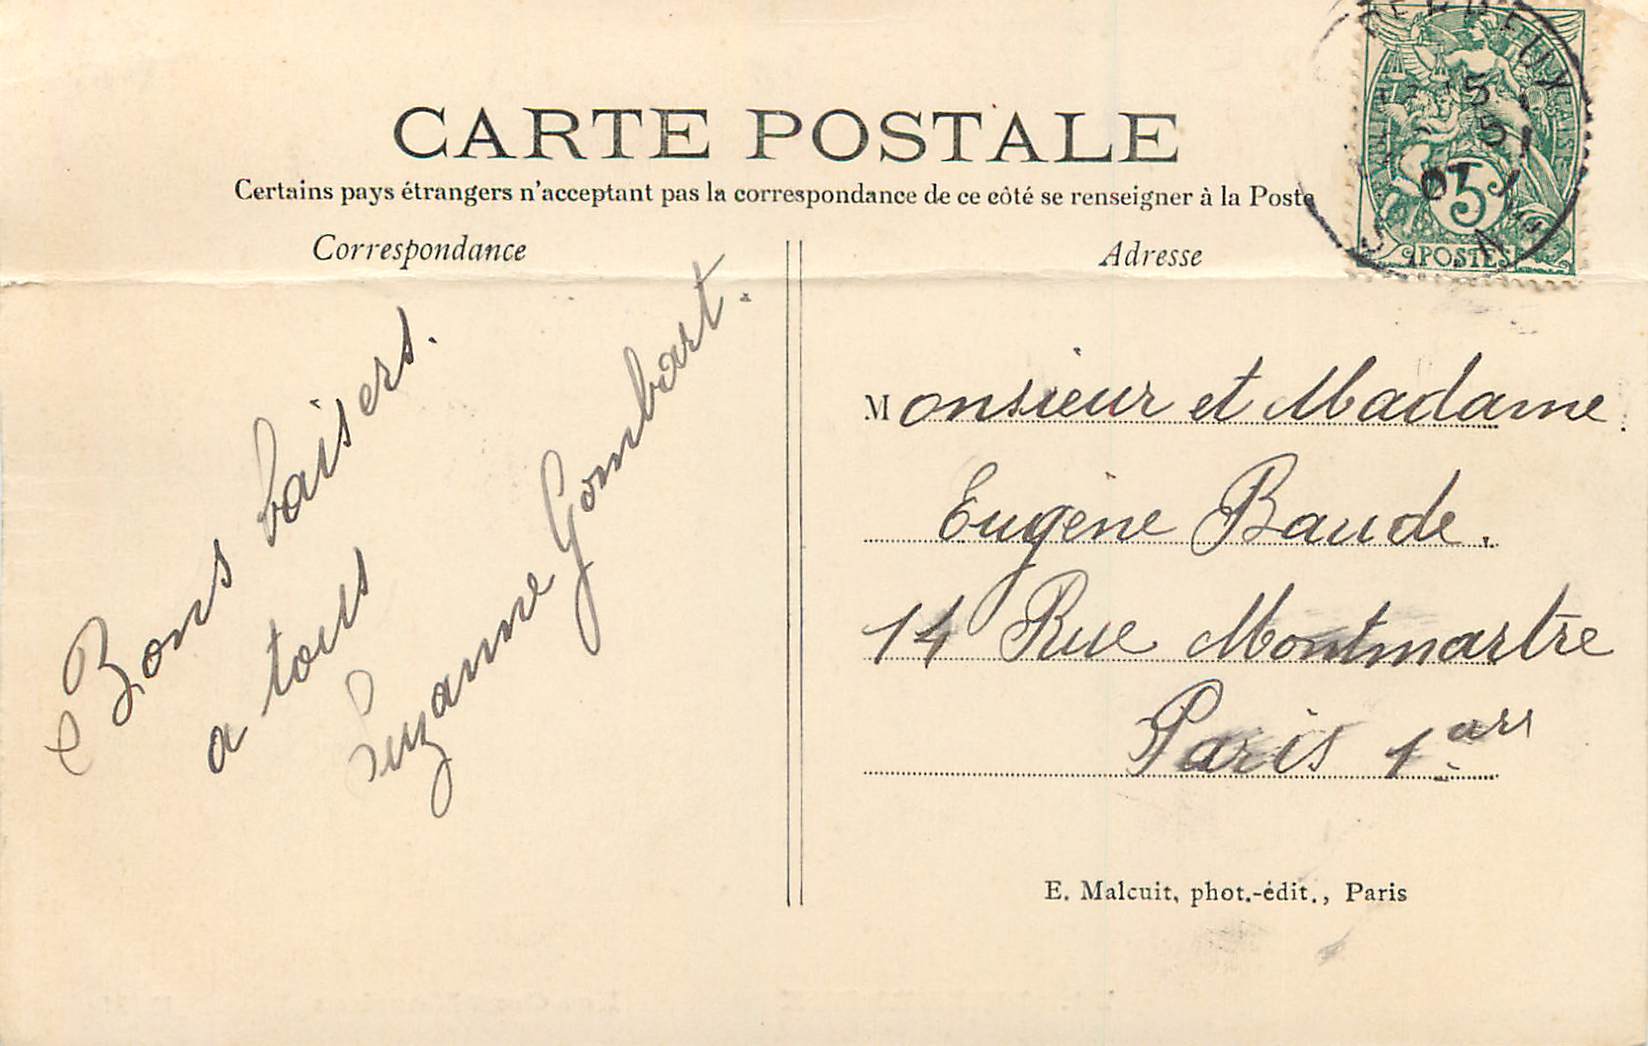 CARTE POSTALE
Certains pays étrangers n'acceptant pas la correspondance de ce côté se renseigner à la Poste
Correspondance
Adresse
Bons baisers.
a tous
Suzanne Gombart.
Monsieur et Madame
Eugène Baude.
14 Rue Montmartre
Paris 1arr
E. Malcuit, phot.-édit., Paris
5
POSTES